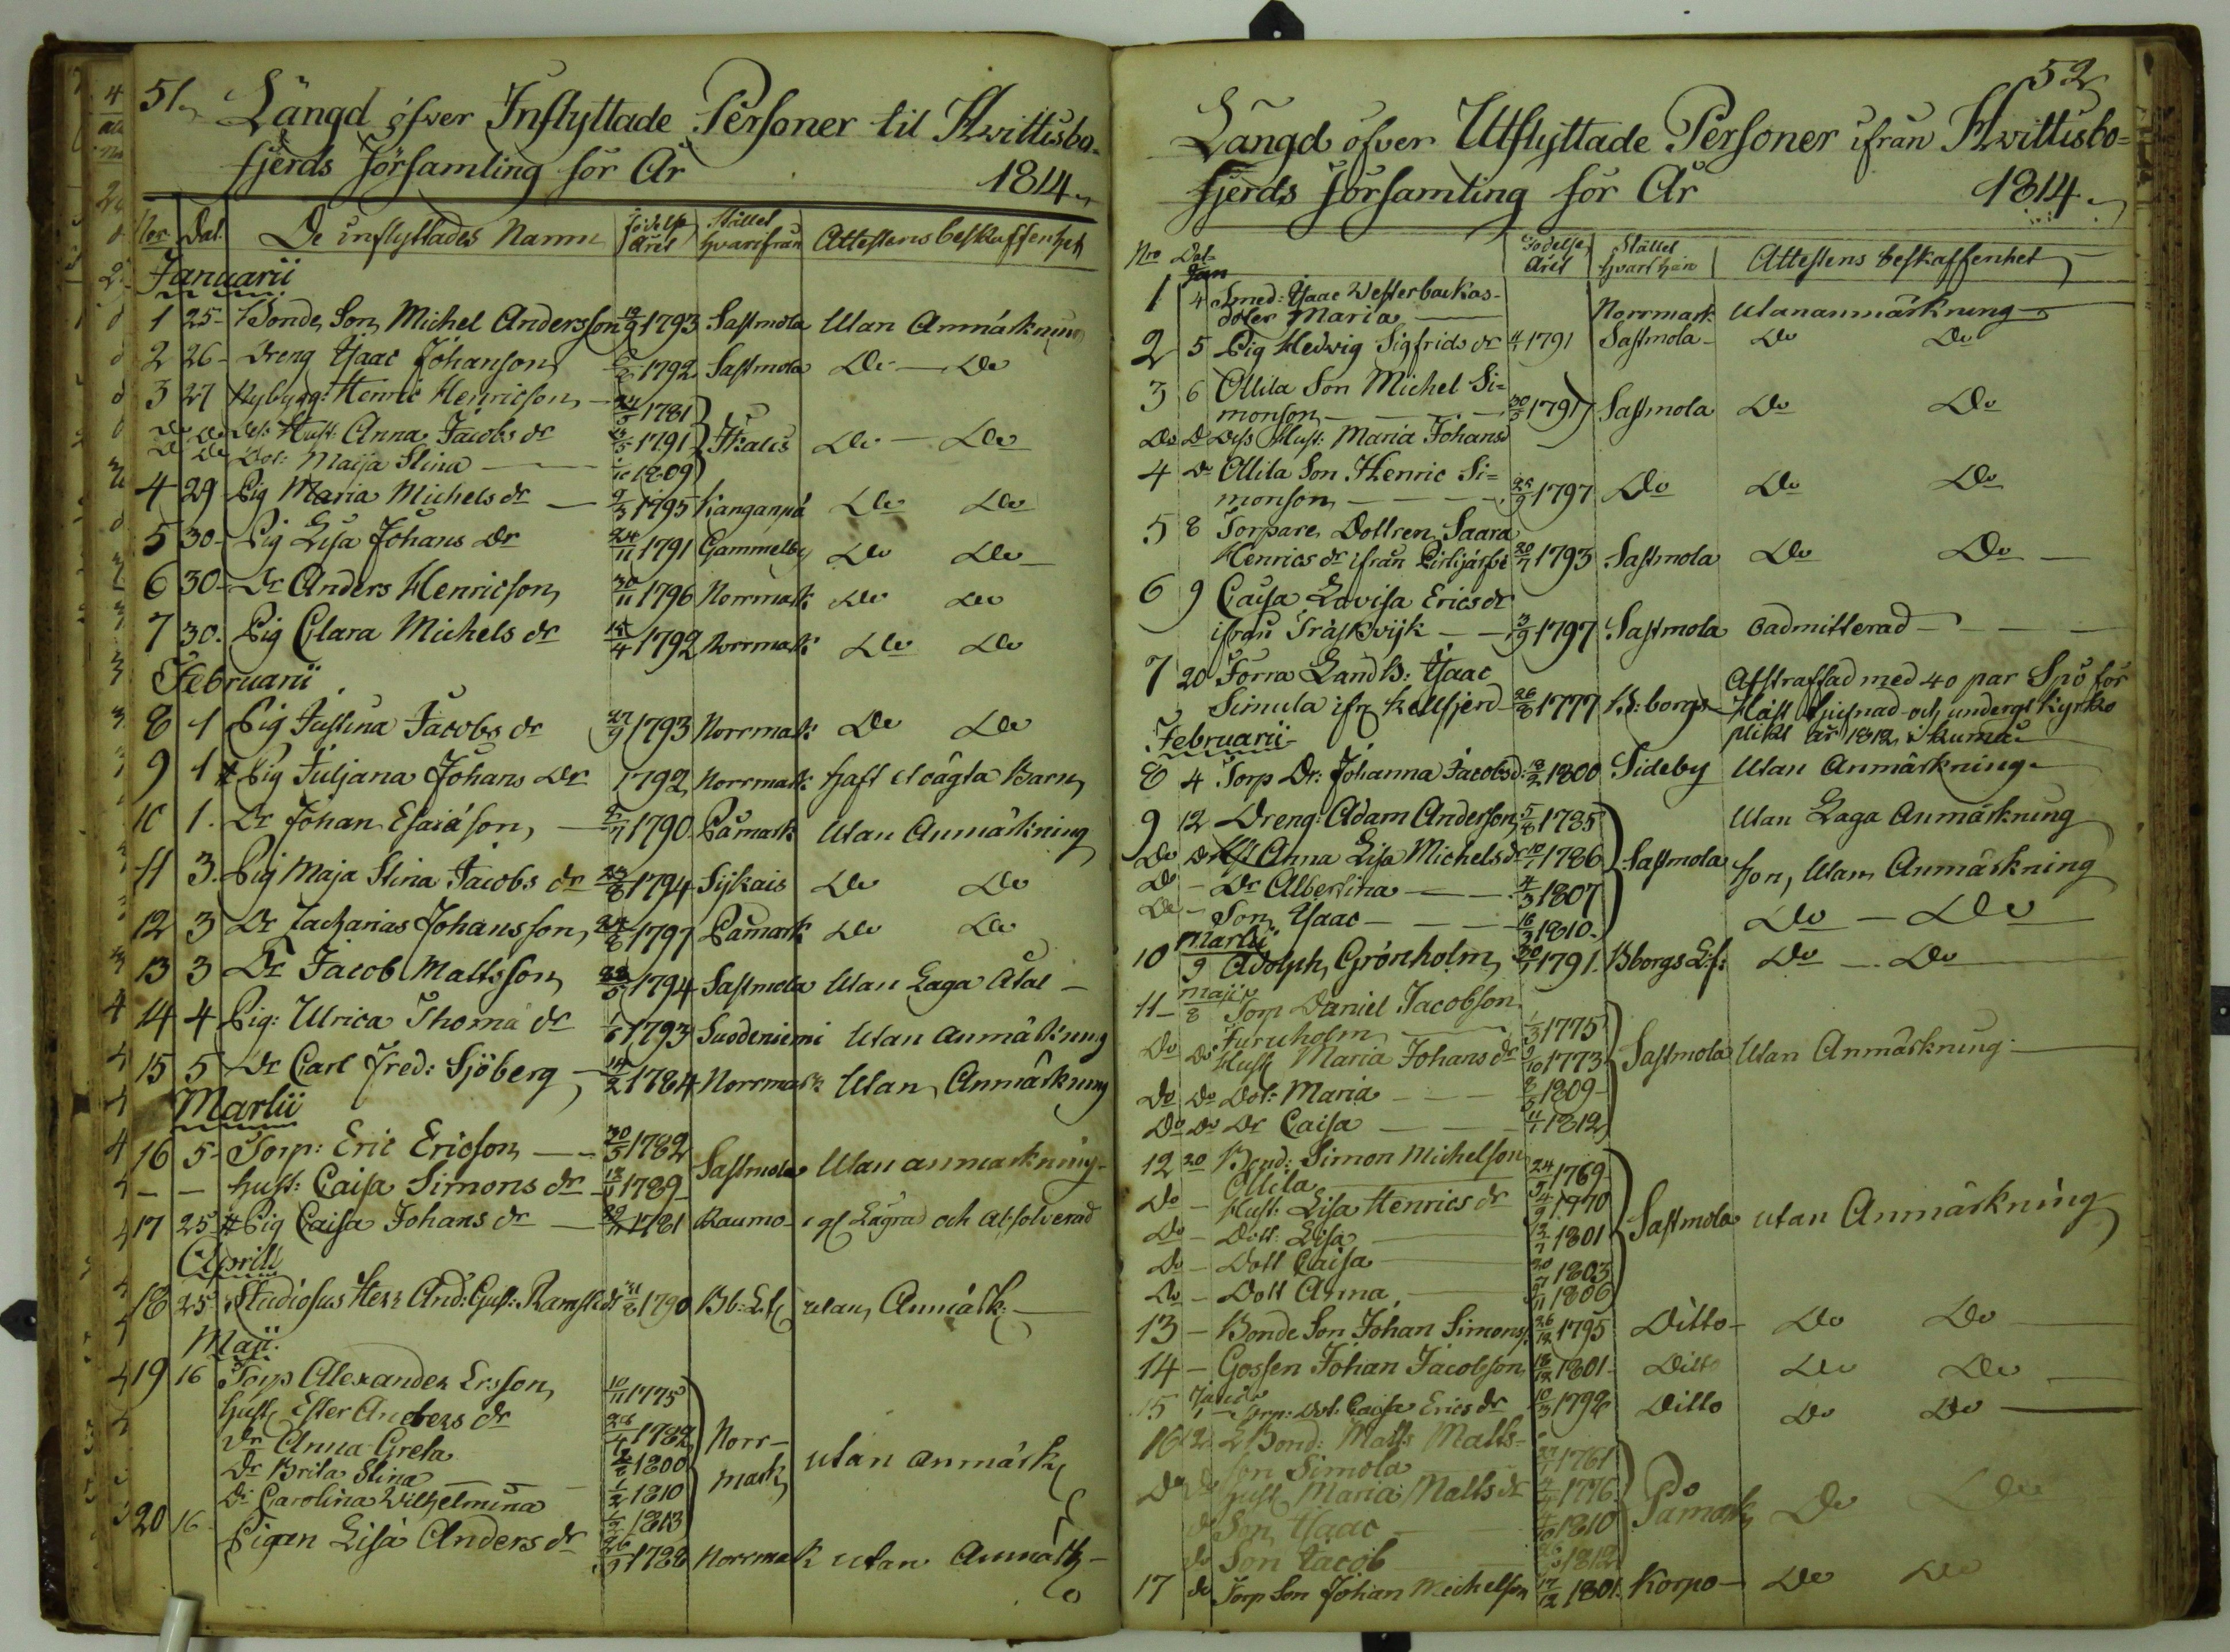 51
Längd öfver Inflyttade Personer til Hvittisbo-
fjerds Församling för År 1814
Nor Dat. De inflyttades Namn Födelse Året Stället hvarifrån Attestens beskaffenhet
Januarii
1 25 Bonde Son Michel Andersson 1793 Sastmola Utan Anmärkning
2 26 Dreng Isaac Johanson 1792 Sastmola Do Do
3 27 Nybygg: Henric Henricson 1781
Do Do Des Hust: Anna Jacobs dr 1791 Do Do
Do Do Dot: Maija Stina 1809
4 29 Pig Maria Michels dr 1795 Kanganpä Do Do
5 30 Pig Lisa Johans Dr 24/11 1791 Gammelby Do Do
6 30 Dr Anders Henricson 30/11 1796 Norrmark Do Do
7 30. Pig Clara Michels dr 1792 Norrmark Do Do
Februarii
8 1 Pig Justina Jacobs dr 1793 Norrmark Do Do
9 1 # Pig Juljana Johans Dr 1792 Norrmark haft oägta Barn
10 1. Dr Johan Esaiäson 1790 Påmark Utan Anmärkning
11 3. Pig Maja Stina Jacobs dr 1794 Sijkais Do Do
12 3 Dr Zacharias Johansson 1797 Påmark Do Do
13 3 Dr Jacob Mattsson 1794 Sastmola Utan Laga Åtal
14 4 Pig: Ulrica Thomä dr 1793 Suodeniemi Utan Anmärkning
15 5 Dr Carl Fred: Sjöberg 1784 Norrmark Utan Anmärkning
Martii
16 5 Torp: Eric Ericson 1782 Sastmola Utan anmärkning
- - hust: Caisa Simons dr 1789
17 25 # Pig Caisa Johans dr 1781 Raumo Lägrad och absolverad
Aprill
18 25 Studiosus Herr And: Gust: Ramstedt 1790 Bb: Lf utan Anmärk:
Maji
19 16 Torp Alexander Ersson 10/11 1775
hust Ester Anders dr 1782 Norr-
Dr Anna Greta 1800 mark utan anmärk
Dr Brita Stina 1810
Dr Carolina Wilhelmina 1813
20 16 Pigan Lisa Anders dr 1788 Norrmark utan Anmärk
52
Längd öfver Utflyttade Personer ifrån Hvittisbo-
fjerds Församling för År 1814
Nro Dat Födelse Året Stället hvart hän Attestens beskaffenhet
Jan
1 4 Smed: Isaac Westerbackas-
doter Maria Norrmark Utananmärkning
2 5 Pig Hedvig Sigfrids dr 1791 Sastmola Do Do
3 6 Ollila Son Michel Si-
monson 1791 Sastmola Do Do
Do D Dess Hust: Maria Johans
4 Do Ollila Son Henric Si-
monson 25/9 1797 Do Do Do
5 8 Torpare Dottren Saara
Henrics dr ifrån 1793 Sastmola Do Do
6 9 Caisa Lovisa Erics dr
ifrån Träskvijk 3/9 1797 Sastmola oadmitterad
7 20 Förra Landb: Isaac Afstraffad med 40 par Spö för
Simula ifr Kellfjerd 26/8 1777 B:borgs Häst tjufnad och undergt Kyrko
plikt år 1812 i Kumå
Februarii
8 4 Torp Dr: Johanna Jacobsd: 1800 Sideby Utan Anmärkning
9 12 Dreng Adam Anderson 1785 Utan Laga Anmärkning
Do Hst Anna Lisa Michels dr 1786 Sastmola hon, Utan Anmärkning
D - Dr Albertina 4/3 1807
Do - Son Isaac 1810 Do Do
Martii
10 9 Adolph Grönholm 1791. Bborgs Lf: Do Do
Maji
11 8 Torp Daniel Jacobson
Furuholm 1775
Do Do Hust Maria Johans dr 1773 Sastmola Utan Anmärkning
Do Do Dot: Maria 1809
Do Do Dr Caisa 1812
12 20 Bond: Simon Michelson
Ollila 1769
Do - Hust: Lisa Henrics dr 1770
Do - Dott: Lisa 1801 Sastmola utan Anmärkning
Do - Dott Caisa 1803
Do - Dott Anna 1806
13 - Bonde Son Johan Simons 26/12 1795 Ditto Do Do
14 - Gossen Johan Jacobson 18/12 1801 Ditto Do Do
15 Torp: Dot: Caisa Erics dr 1798 Ditto Do Do
16 12 Bond: Matts Matts-
son Simola 1761
D D hust Maria Matts dr 1776 Påmark Do Do
do Son Isaac 1810
do Son Jacob 1812
17 do Torp Son Johan Michelson 17/12 1801 Korpo Do Do